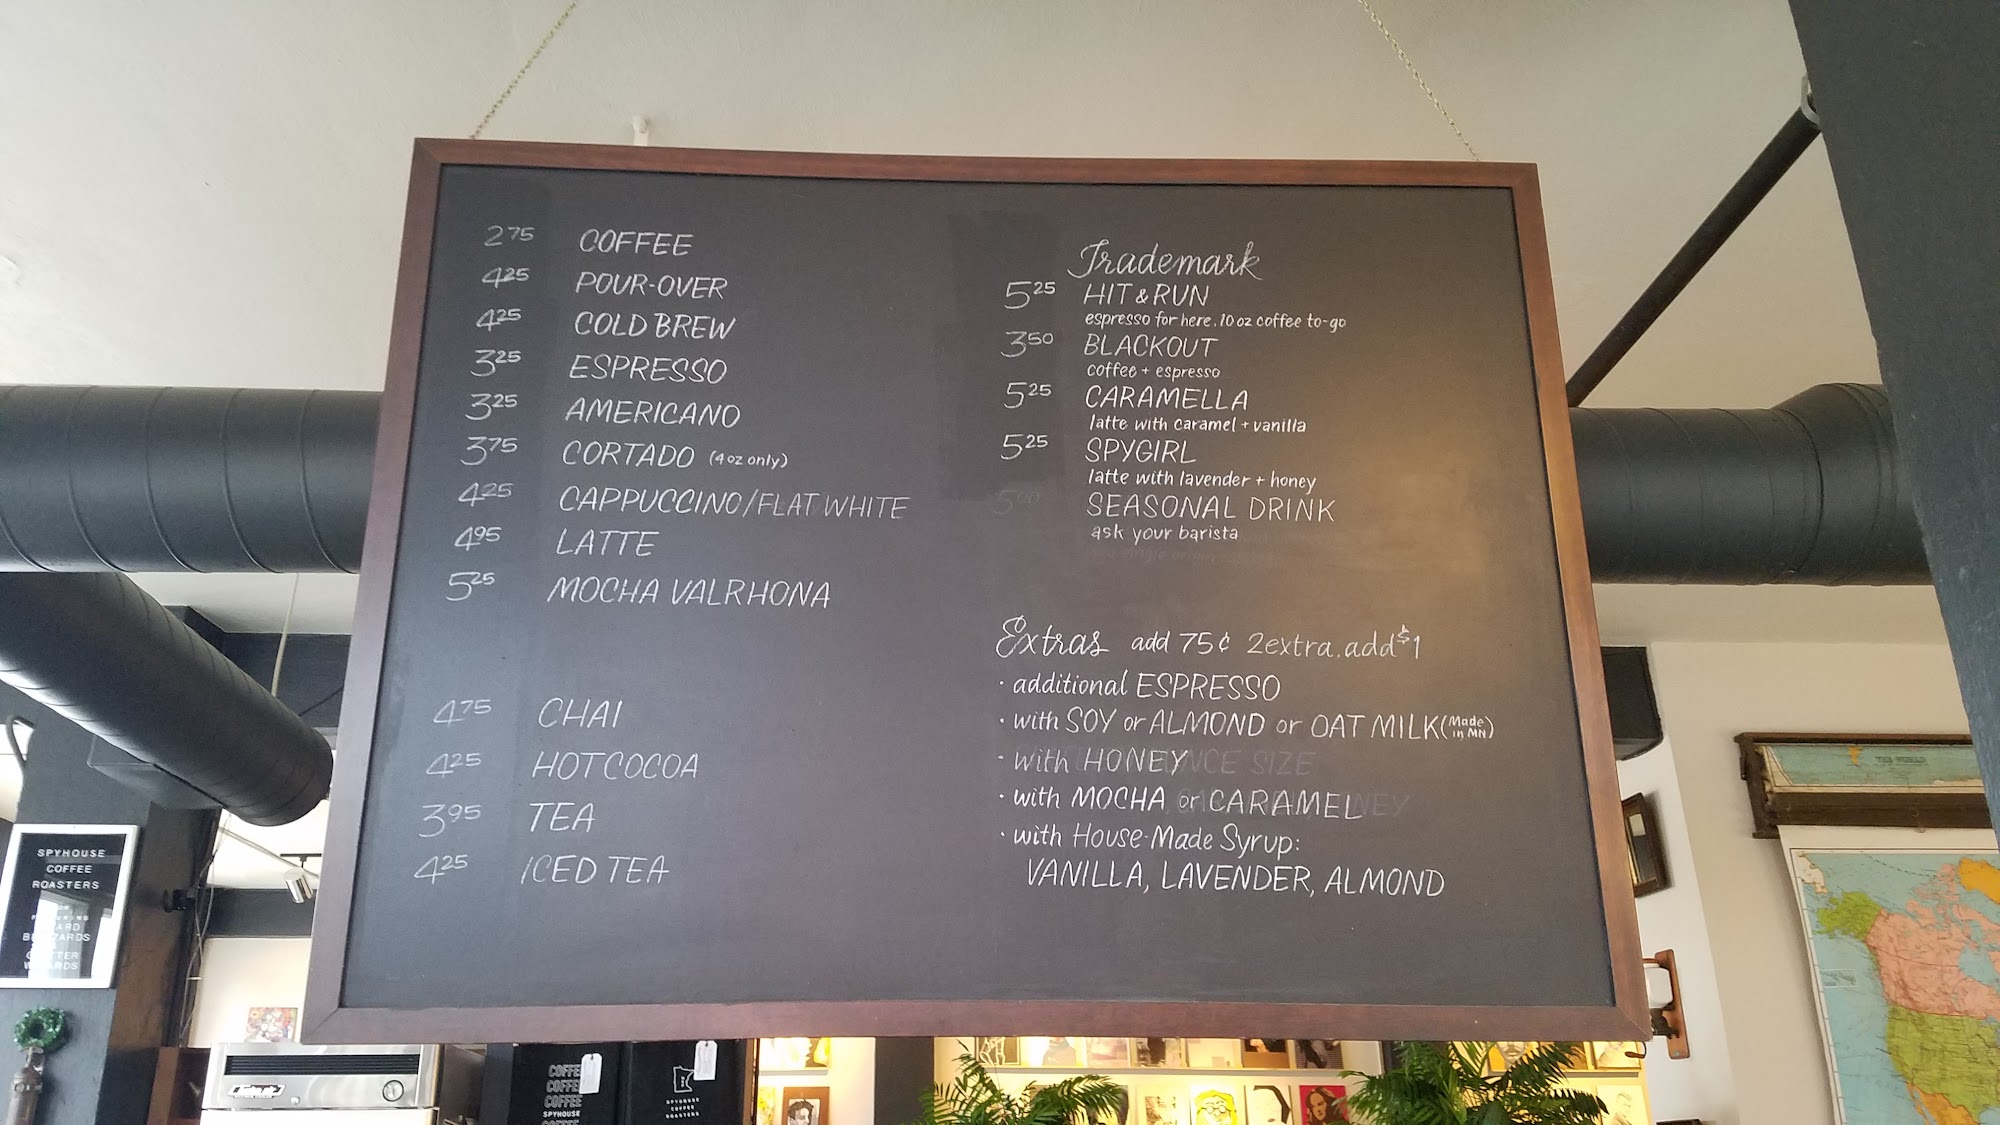 2 75 COFFEE
4 25 POUR-OVER
4 25 COLD BREW
3 25 ESPRESSO
3 25 AMERICANO
3 75 CORTADO (4 oz only)
4 25 CAPPUCCINO/FLAT WHITE
4 95 LATTE
5 25 MOCHA VALRHONA
4 75 CHAI
4 25 HOT COCOA
3 95 TEA
4 25 ICED TEA
Trademark
5 25 HIT & RUN
espresso for here. 10 oz coffee to-go
3 50 BLACKOUT
coffee + espresso
5 25 CARAMELLA
latte with caramel + vanilla
5 25 SPYGIRL
latte with lavender + honey
SEASONAL DRINK
ask your barista
Extras add 75¢ 2 extra. add $1
· additional ESPRESSO
· with SOY or ALMOND or OAT MILK (Made in MN)
· with HONEY
· with MOCHA or CARAMEL
· with House-Made Syrup:
VANILLA, LAVENDER, ALMOND
SPYHOUSE
COFFEE
ROASTERS
COFFEE
COFFEE
COFFEE
SPYHOUSE
SPYHOUSE
COFFEE
ROASTERS
THE WORLD